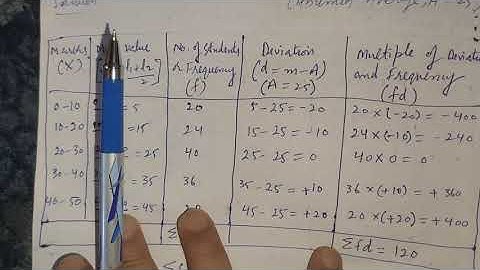 Solution (Assumed Average, A = 25)
Marks (X) value l1+l2/2] No. of Students or Frequency (f) Deviation (d = m-A) (A = 25) Multiple of Deviation and Frequency (fd)
0-10 = 5 20 5-25 = -20 20 × (-20) = -400
10-20 = 15 24 15-25 = -10 24 × (-10) = -240
20-30 = 25 40 25-25 = 0 40 × 0 = 0
30-40 = 35 36 35-25 = +10 36 × (+10) = +360
40-50 = 45 45-25 = +20 20 × (+20) = +400
Σ Σfd = 120